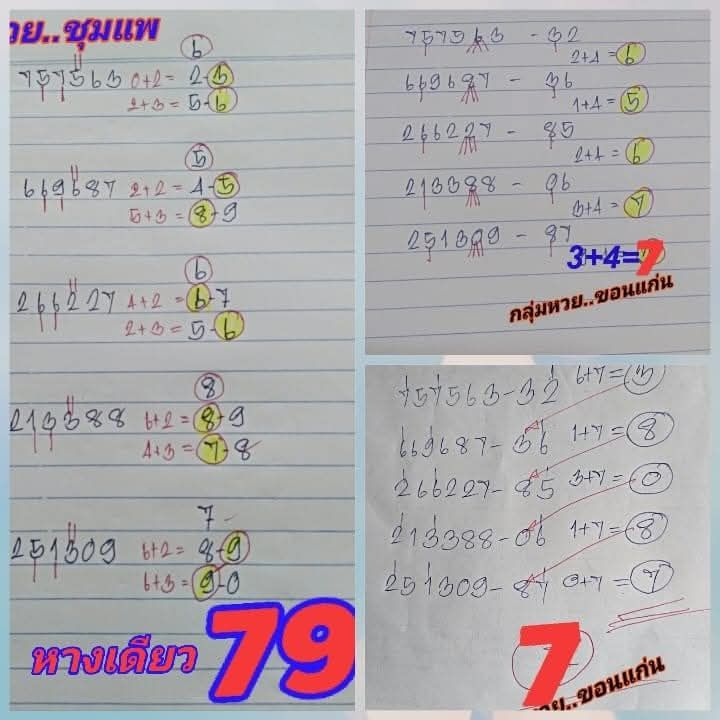 วย..ชุมแพ
6
757563 0+2= 2-3
2+3= 5-6
5
669687 2+2= 4-5
5+3= 8-9
6
266227 4+2= 6-7
2+3= 5-6
8
213388 6+2= 8-9
4+3= 7-8
7-
251309 6+2= 8-9
6+3= 9-0
หางเดียว 79
757563 - 32
2+4= 6
669687 - 36
1+4= 5
266227 - 85
2+4= 6
213388 - 06
3+4= 7
251309 - 87
3+4=7
กลุ่มหวย..ขอนแก่น
757563-32 6+7= 3
669687-36 1+7= 8
266227-85 3+7= 0
213388-06 1+7= 8
251309-87 0+7= 7
7
วย..ขอนแก่น